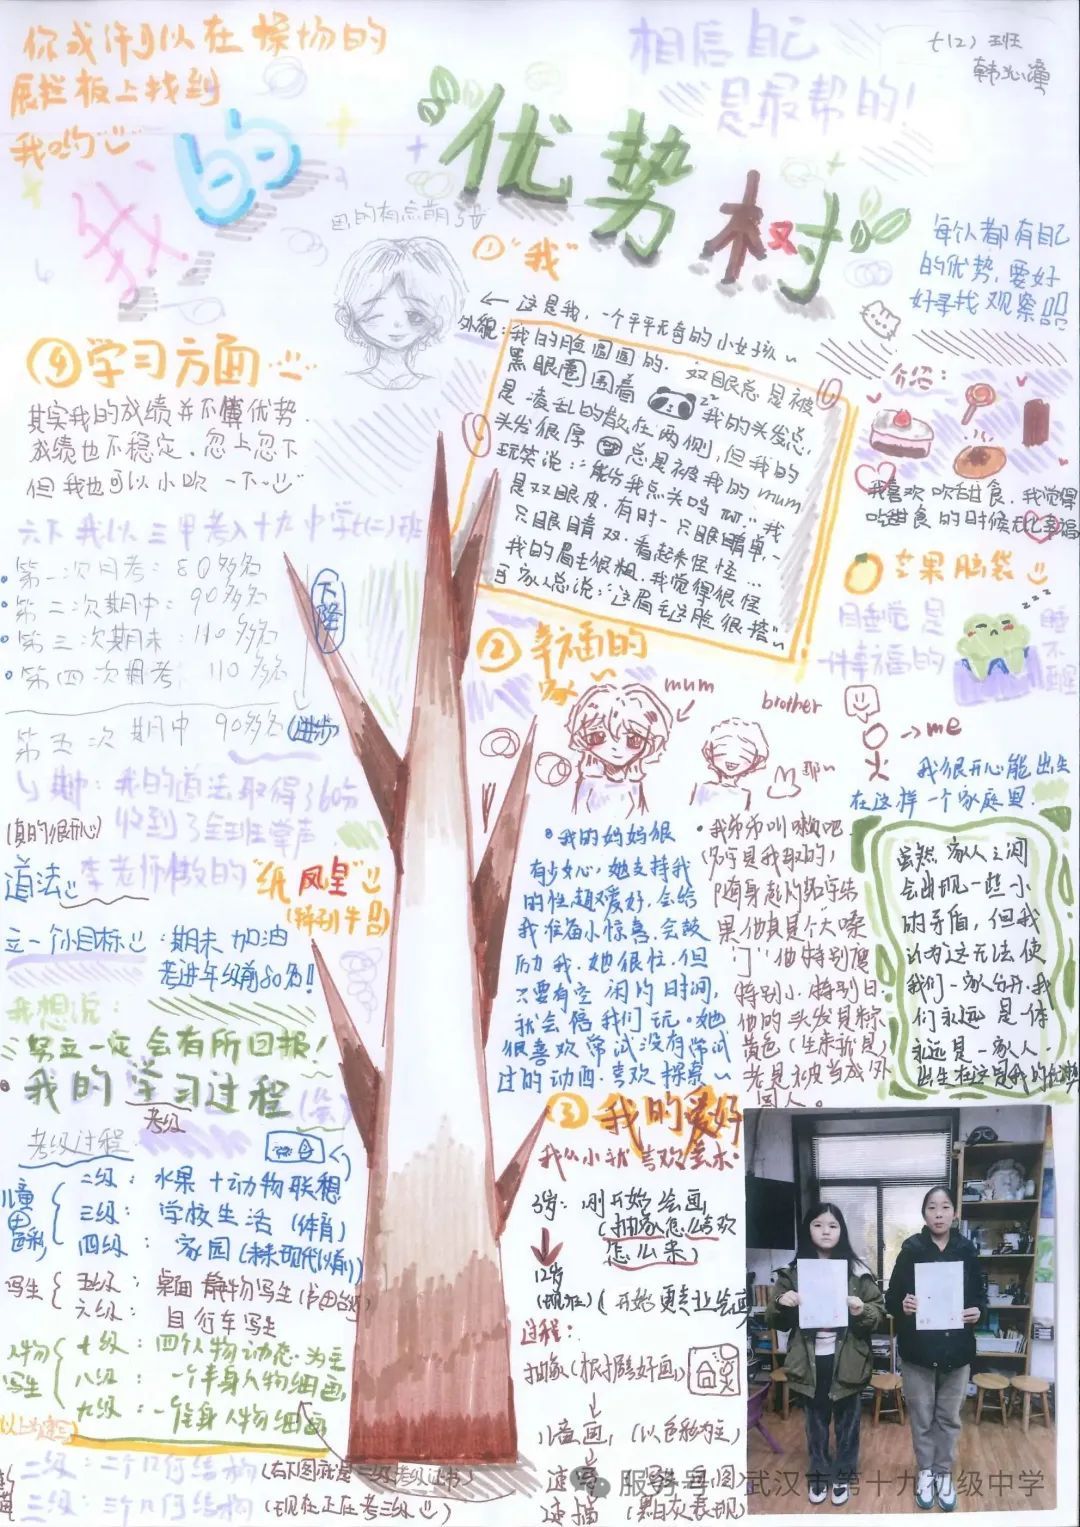 你或许可以在操场的
展拦板上找到
我哟
相信自己
是最帮的!
七(2)班
我的优势树
每个人都有自己
的优势,要好
好寻找观察
①"我"
← 这是我,一个平平无奇的小女孩~
外貌:我的脸圆圆的.双眼总是被
黑眼圈围着
我的头发总
是凌乱的散在两侧,但我的
头发很厚
总是被我的mum
玩笑说:"能分我点头吗
我
是双眼皮,有时一只眼睛单,一
只眼睛双.看起来怪怪...
我的眉毛很粗.我觉得很怪
可家人总说:"这眉毛这脸很搭"~
介绍:
我喜欢吃甜食.我觉得
吃甜食的时候无比幸福
芒果脑袋
睡觉是
一件幸福的
睡
不
醒
②幸福的
家
mum
brother
→me
我很开心能出生
在这样一个家庭里.
• 我的妈妈很
有少女心,她支持我
的性趣爱好.会给
我准备小惊喜.会鼓
励我.她很忙.但
只要有空闲的时间,
就会陪我们玩。她
很喜欢常试没有常试
过的动西.喜欢探索~
虽然家人之间
会出现一些小
的矛盾,但我
认为这无法使
我们一家分开.我
们永远是一体
永远是一家人.
出生在这是我的优势
③我的爱好
我从小就喜欢美术.
3岁:刚开始绘画
(抽象怎么喜欢
怎么来)
12岁
(现在)(开始更专业绘画
过程:
抽象(根据喜好画)
↓
儿童画,(以色彩为主)
↓
速写
速描 (黑白灰表现)
④学习方面
其实我的成绩并不懂优势.
成绩也不稳定.忽上忽下
但我也可以小吹一下
六下我以三甲考入十九中学七(二)班
• 第一次月考: 80多名
• 第二次期中: 90多名
• 第三次期末: 110多名
• 第四次调考: 110多名
下降
第五次期中 90多名 (进步)
↳期中:我的道法取得了60分
(真的很开心)
收到了全班掌声
道法
李老师做的"纸凤皇"
(特别牛品)
立一个小目标 :期末加油
考进年级前80名!!
我想说:
努立一定会有所回报!
• 我的学习过程
考级
考级过程
儿童
色彩
二级: 水果+动物联想
三级: 学校生活 (体育)
四级: 家园(未来现代以前)
写生
五级: 桌面静物写生
六级: 自行车写生
人物
写生
七级: 四个人物动态为主
八级: 一个半身人物细画
九级: 一个全身人物细画
二级: 二个几何结构 (右下图就是二级考级证书)
三级: 三个几何结构 (现在正在考三级)
服务号 武汉市第十九初级中学